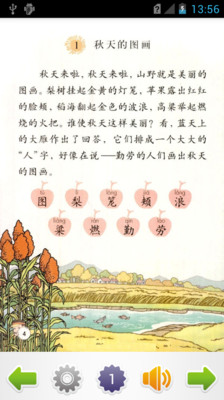 13:56
1 秋天的图画
秋天来啦,秋天来啦,山野就是美丽的
图画。梨树挂起金黄的灯笼,苹果露出红红
的脸颊,稻海翻起金色的波浪,高粱举起燃
烧的火把。谁使秋天这样美丽?看,蓝天上
的大雁作出了回答,它们排成一个大大的
“人”字,好像在说——勤劳的人们画出秋天
的图画。
tú lí lóng jiá làng
图 梨 笼 颊 浪
liáng rán qín láo
梁 燃 勤 劳
4
1